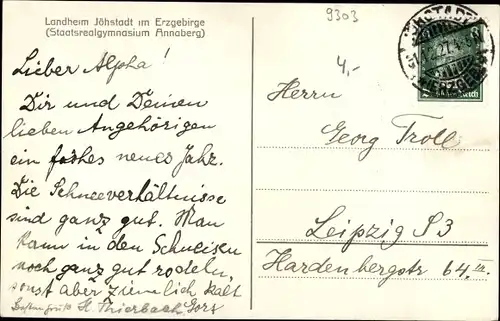 Landheim Jöhstadt im Erzgebirge
(Staatsrealgymnasium Annaberg)
Lieber Alpha!
Dir und Deinen
lieben Angehörigen
ein frohes neues Jahr.
Die Schneeverhältnisse
sind ganz gut. Man
kann in den Schneisen
noch ganz gut rodeln,
sonst aber ziemlich kalt
H. Thierbach
9303
4,-
Herrn
Georg Troll
Leipzig S3
Hardenbergstr 64 III